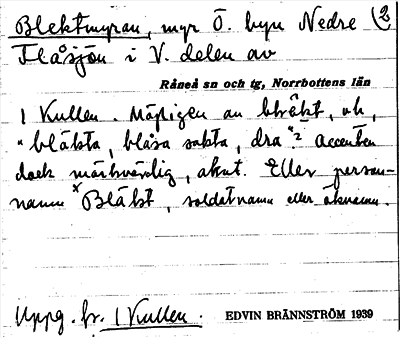 Blektmyran, myr Ö. byn Nedre (2
Flåsjön i V. delen av
Råneå sn och tg, Norrbottens län
1 Kullen. Möjligen av
"bläkta, blåsa sakta, dra"? accenten
dock märkvärdig, akut. Eller person-
namn *Bläkt, soldatnamn eller öknamn.
Uppg. fr. 1 Kullen. EDVIN BRÄNNSTRÖM 1939